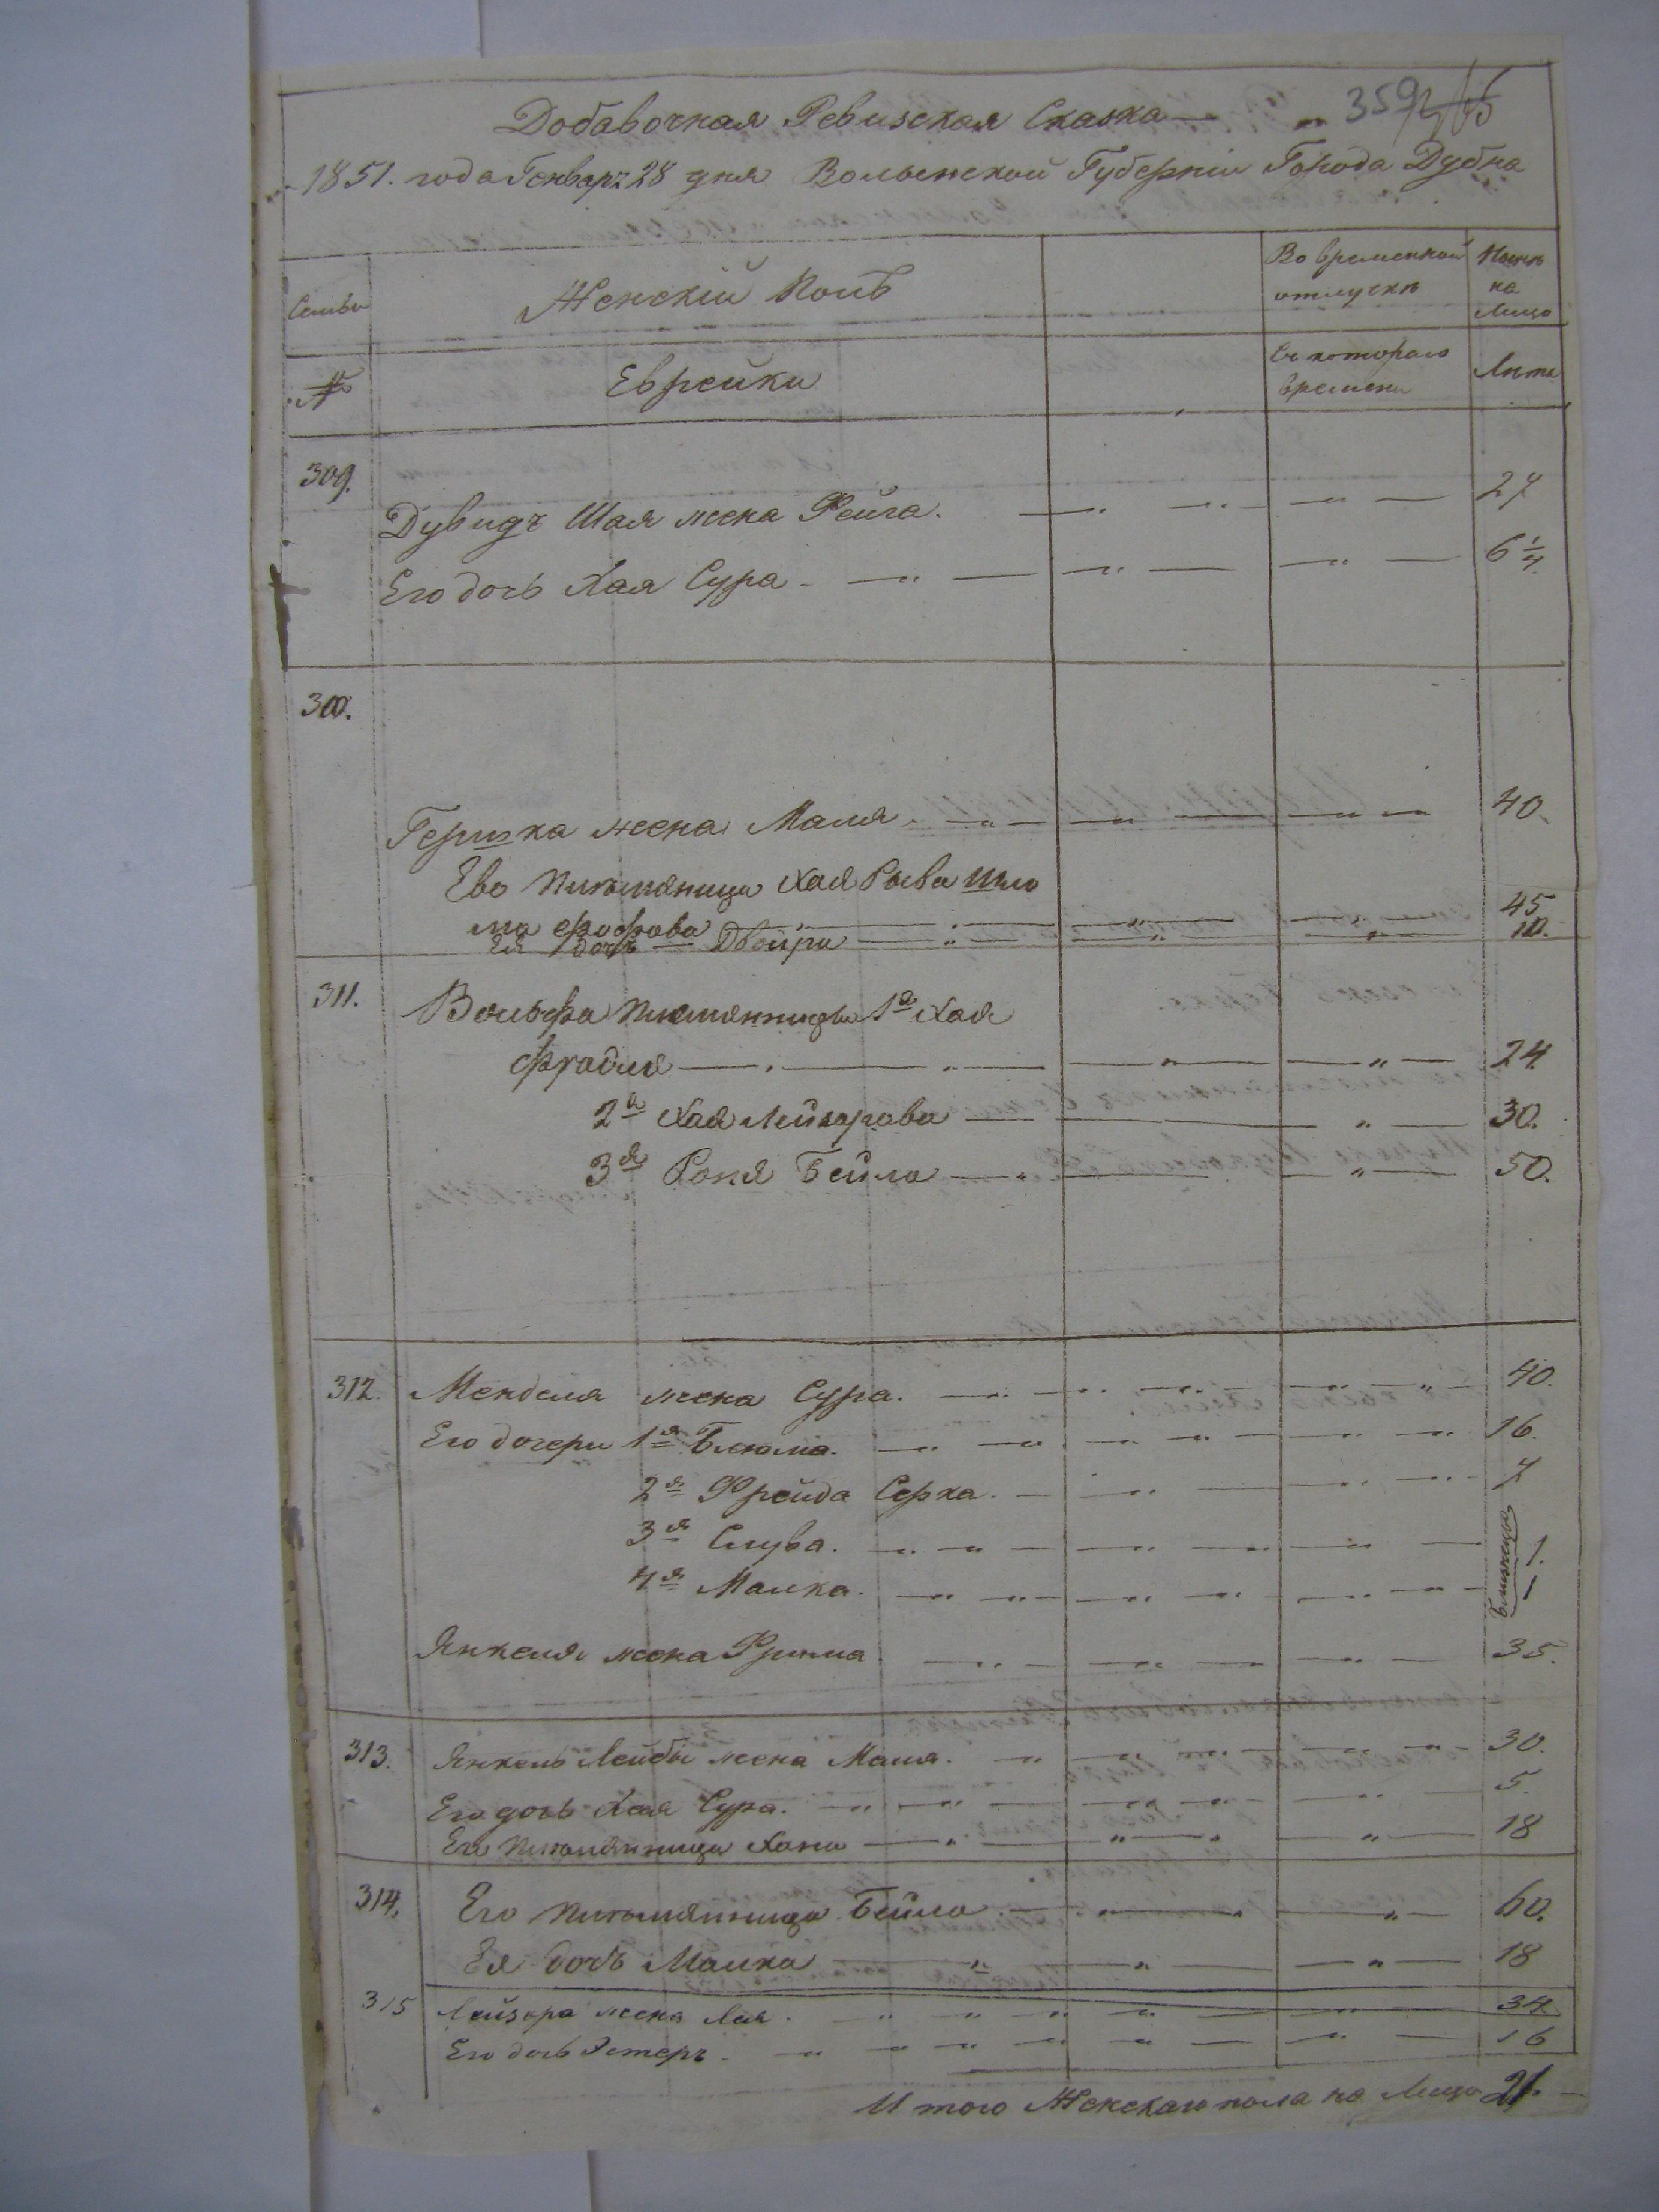 Добавочная Ревизская Сказка — 359
1851. года Генваря 28 дня Волынской Губернiи Города Дубна
Семьи
Женскiй Полъ
Во временной отлучкѣ
Нынѣ на лицо
№
Еврейки
Съ котораго времени
Лѣта
309.
Дувидъ Шая жена Фейга. 27
Его дочь Хая Сура - 6 1/4.
310.
Гершка жена Маля. 40
Ево Пигъмяница Хая Рыва Шло
ма 45
Ея дочь Двойра 10.
311. Вольфа Племянницы 1я Хая
Фрадля 24
2я Хая Лейзарова 30.
3я Рохя Бейла 50.
312. Менделя жена Сура. 40.
Его дочери 1я Блюма. 16.
2я Фрейда Серка. 7
3я Слува. 1.
4я Малка. 1
близнецы
Янкеля жена Фрима 35.
313. Янкель Лейбы жена Маля. 30.
Его дочь Хая Сура. 5.
Его Племянница Хана 18
314. Его Племянница Бейла 60.
Ея дочь Малка 18
315 Лейзора жена Лея. 34
Его дочь Эстеръ. 16
Итого Женскаго пола на Лицо 21